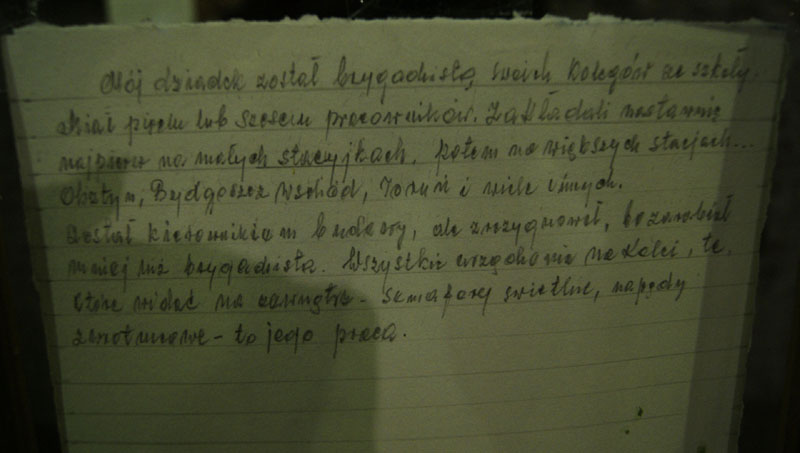 Mój dziadek został brygadistą swoich kolegów ze szkoły.
Miał pięciu lub sześciu pracowników. Zakładali nastawnie
najpierw na małych stacyjkach, potem na większych stacjach...
Olsztyn, Bydgoszcz Wschód, Toruń i wiele innych.
Został kierownikiem budowy, ale zrezygnował, bo zarabiał
mniej niż brygadista. Wszystkie urządzenia na kolei, te,
które widać na zewnątrz - semafory świetlne, napędy
zwrotnicowe - to jego praca.